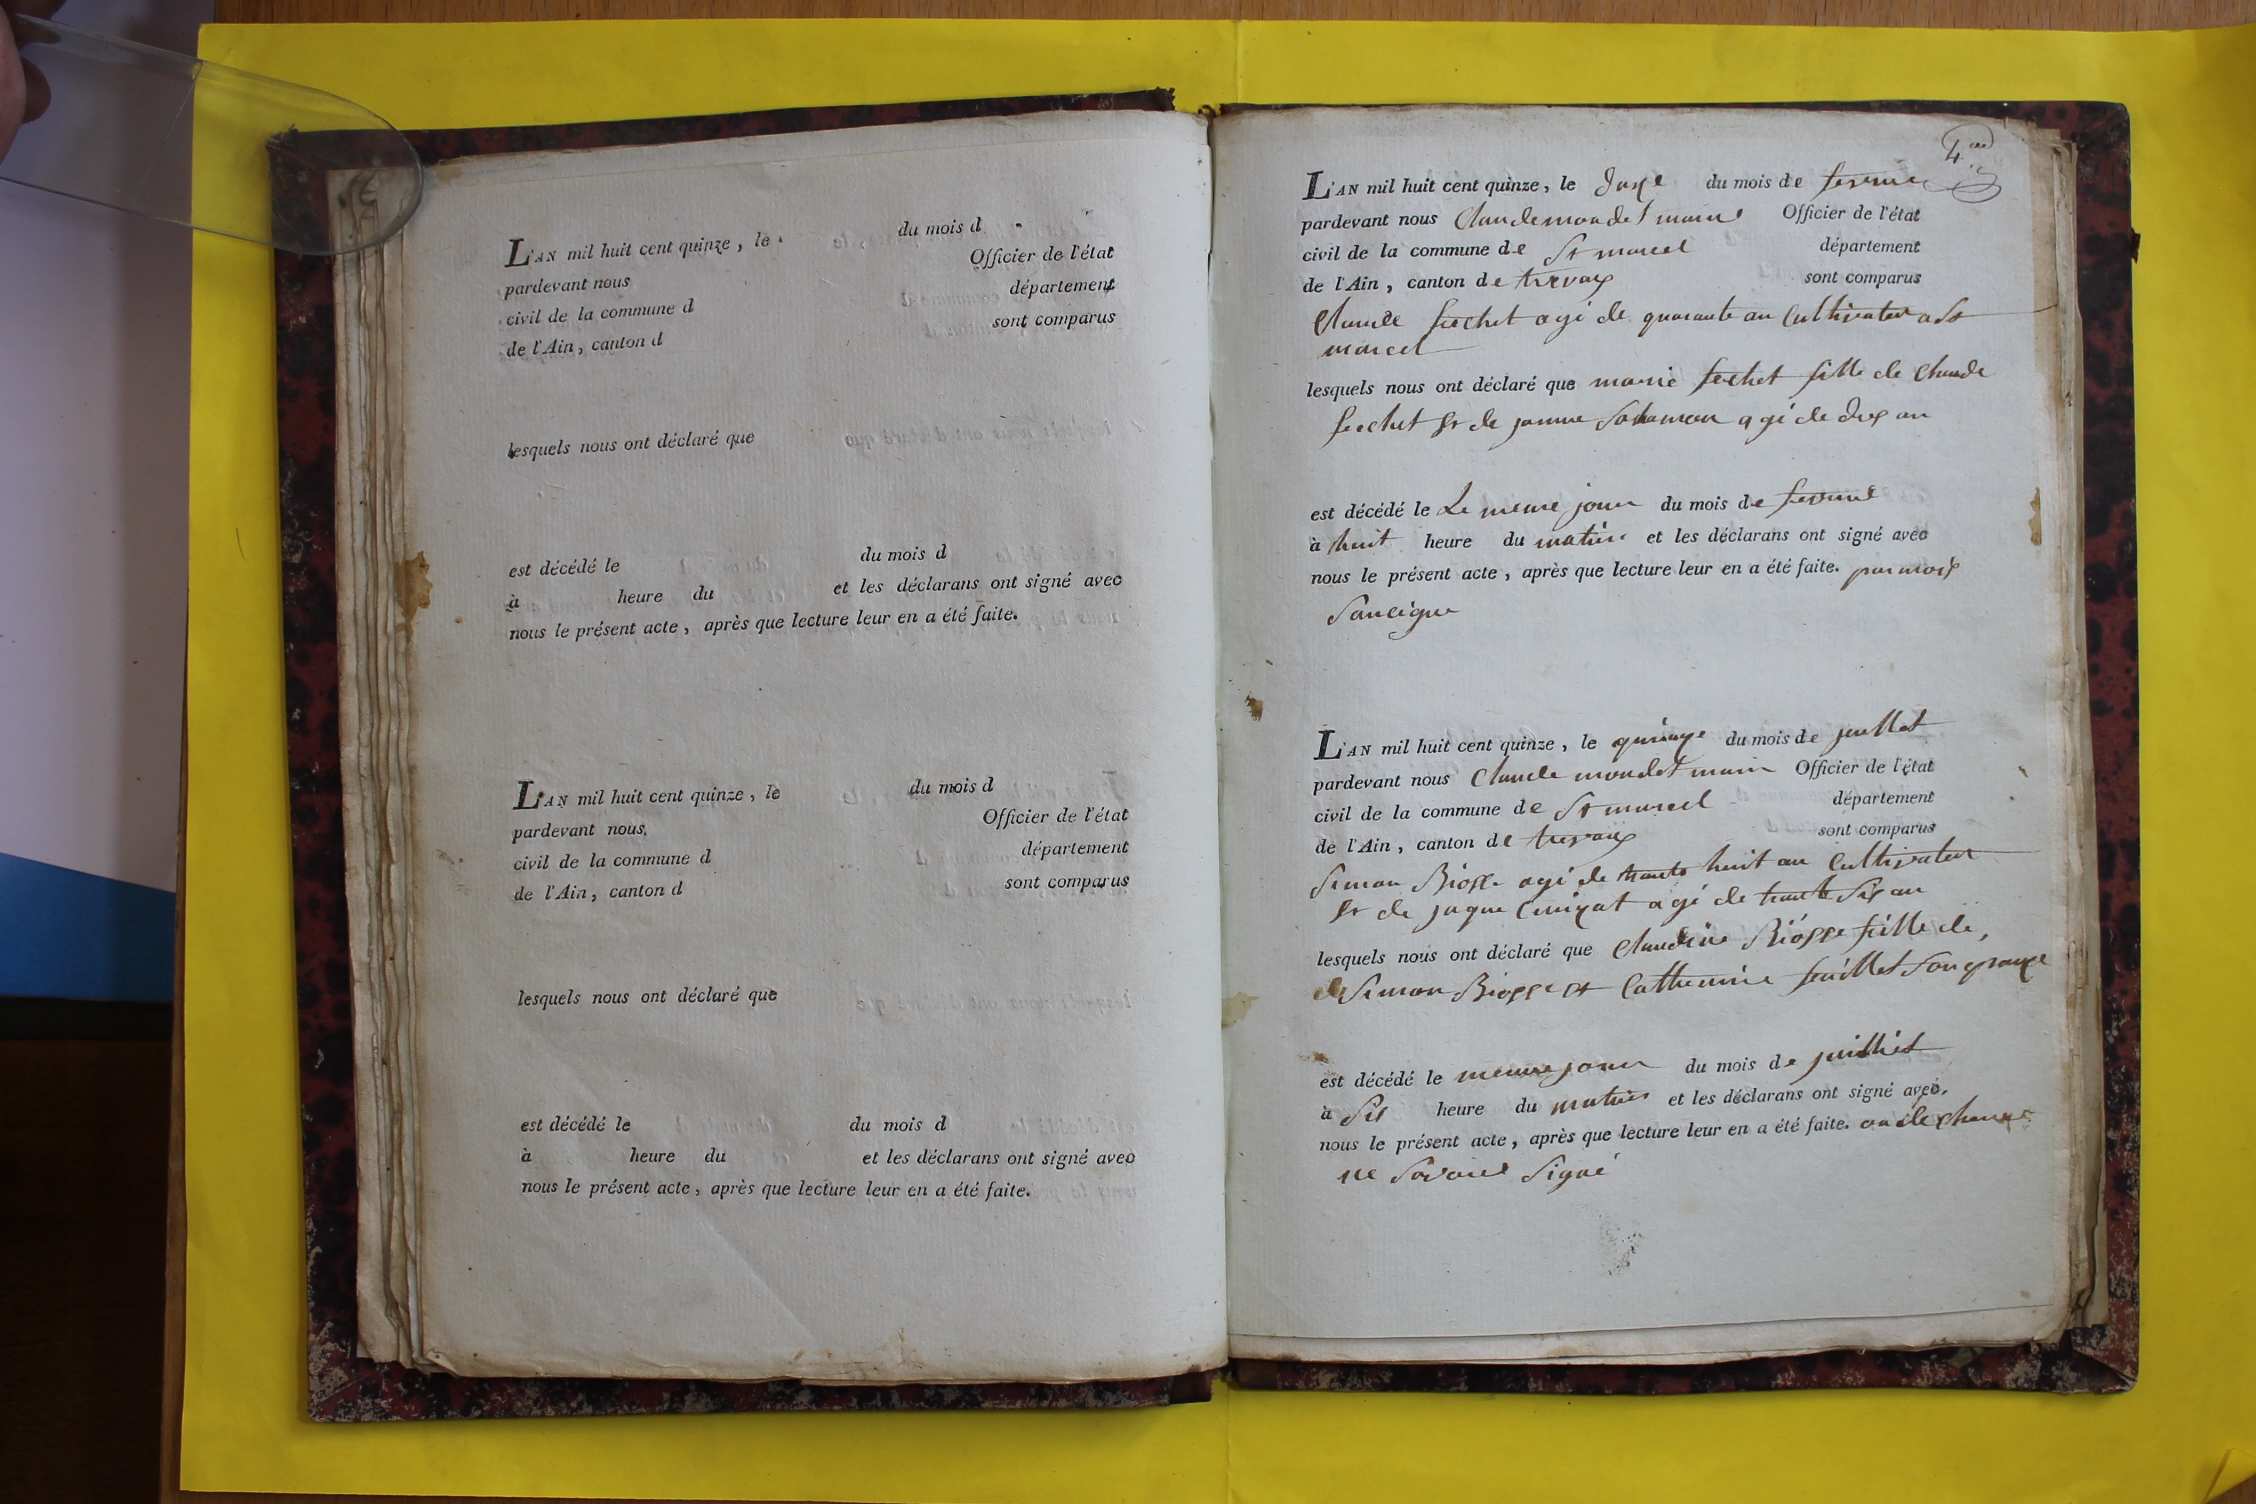 L'AN mil huit cent quinze, le du mois d
pardevant nous Officier de l'état
civil de la commune d département
de l'Ain, canton d sont comparus
lesquels nous ont déclaré que
est décédé le du mois d
à heure du et les déclarans ont signé avec
nous le présent acte, après que lecture leur en a été faite.
L'AN mil huit cent quinze, le du mois d
pardevant nous Officier de l'état
civil de la commune d département
de l'Ain, canton d sont comparus
lesquels nous ont déclaré que
est décédé le du mois d
à heure du et les déclarans ont signé avec
nous le présent acte, après que lecture leur en a été faite.
L'AN mil huit cent quinze, le du mois de
pardevant nous Claude mondet Officier de l'état
civil de la commune de St marcel département
de l'Ain, canton de trevoux sont comparus
Claude fechet agé de quarante an Cultivateur a St
marcel
lesquels nous ont déclaré que marie fechet fille de Claude
fechet et de janne agé de an
est décédé le Le meme jour du mois de
à huit heure du matin et les déclarans ont signé avec
nous le présent acte, après que lecture leur en a été faite. par moi
L'AN mil huit cent quinze, le quinze du mois de juillet
pardevant nous Claude mondet Officier de l'état
civil de la commune de St marcel département
de l'Ain, canton de trevoux sont comparus
Simon Biosse agé de trante huit an Cultivateur
et de jaque agé de trante Six an
lesquels nous ont déclaré que Claudine Biosse fille de,
de Simon Biosse et Catherine feuillet
est décédé le meme jour du mois de juilliet
à Six heure du matin et les déclarans ont signé avec,
nous le présent acte, après que lecture leur en a été faite. on de Claré
ne Savoir Signé